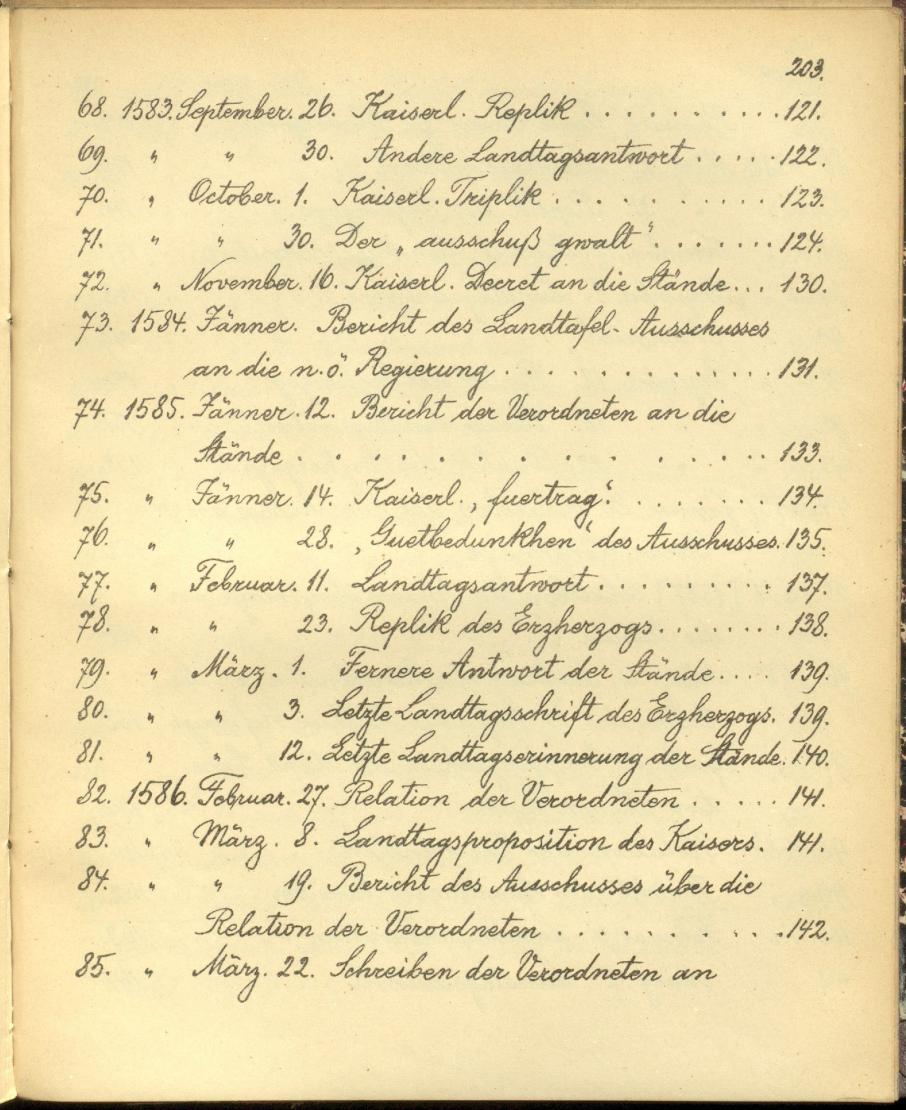 203.
68. 1583. September. 26. Kaiserl. Replik . . . . . . . . . . . 121.
69. " " 30. Andere Landtagsantwort . . . . . 122.
70. " October. 1. Kaiserl. Triplik . . . . . . . . . . 123.
71. " " 30. Der „ausschuß gwalt“ . . . . . . . 124.
72. " November. 16. Kaiserl. Decret an die Stände . . . 130.
73. 1584. Jänner. Bericht des Landtafel-Ausschusses
an die n.ö. Regierung . . . . . . . . . . . . . . 131.
74. 1585. Jänner. 12. Bericht der Verordneten an die
Stände . . . . . . . . . . . . . . . 133.
75. " Jänner. 14. Kaiserl. „fuertrag“. . . . . . . . 134.
76. " " 28. „Guetbedunkhen“ des Ausschusses. 135.
77. " Februar. 11. Landtagsantwort . . . . . . . . . . 137.
78. " " 23. Replik des Erzherzogs . . . . . . . . 138.
79. " März. 1. Fernere Antwort der Stände . . . . 139.
80. " " 3. Letzte Landtagsschrift des Erzherzogs. 139.
81. " " 12. Letzte Landtagserinnerung der Stände. 140.
82. 1586. Februar. 27. Relation der Verordneten . . . . . 141.
83. " März. 8. Landtagsproposition des Kaisers. 141.
84. " " 19. Bericht des Ausschusses über die
Relation der Verordneten . . . . . . . . . . . 142.
85. " März. 22. Schreiben der Verordneten an